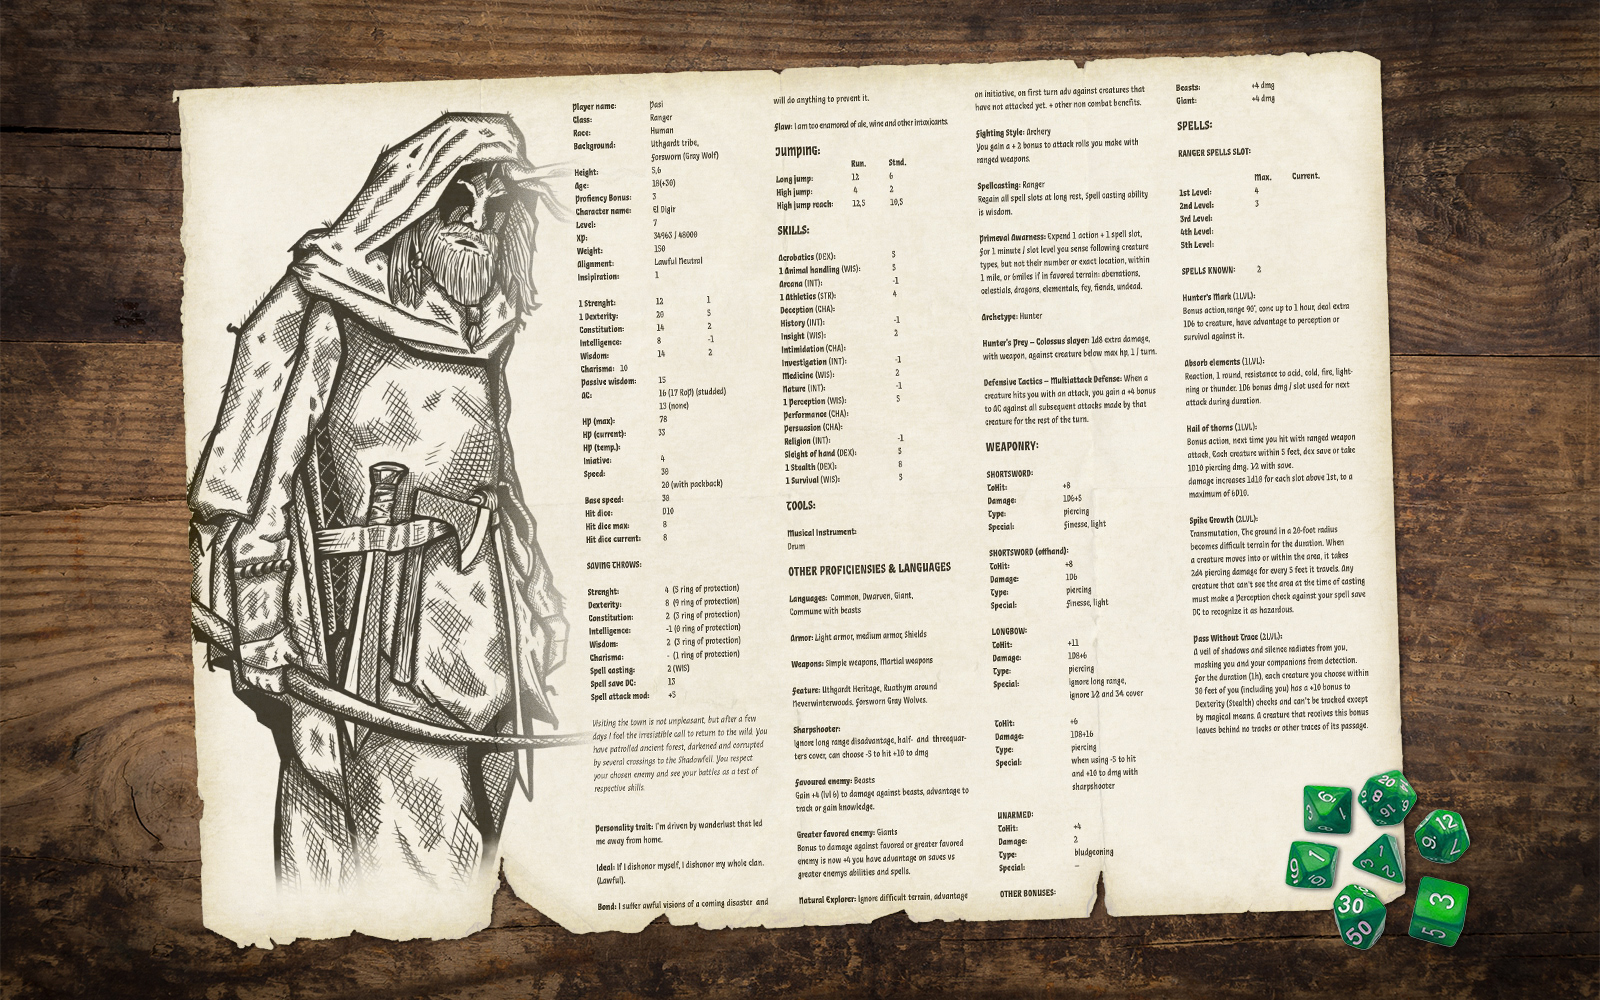 Player name: Pasi
Class: Ranger
Race: Human
Background: Uthgardt tribe,
Forsworn (Gray Wolf)
Height: 5,6
Age: 18(+30)
Profiency Bonus: 3
Character name: El Digir
Level: 7
Xp: 34963 / 48000
Weight: 150
Alignment: Lawful Neutral
Insipiration: 1
1 Strenght: 12 1
1 Dexterity: 20 5
Constitution: 14 2
Intelligence: 8 -1
Wisdom: 14 2
Charisma: 10
Passive wisdom: 15
AC: 16 (17 RoP) (studded)
13 (none)
HP (max): 78
HP (current): 33
HP (temp.):
Iniative: 4
Speed: 30
20 (with packback)
Base speed: 30
Hit dice: D10
Hit dice max: 8
Hit dice current: 8
SAVING THROWS:
Strenght: 4 (5 ring of protection)
Dexterity: 8 (9 ring of protection)
Constitution: 2 (3 ring of protection)
Intelligence: -1 (0 ring of protection)
Wisdom: 2 (3 ring of protection)
Charisma: - (1 ring of protection)
Spell casting: 2 (WIS)
Spell save DC: 13
Spell attack mod: +5
Visiting the town is not unpleasant, but after a few
days I feel the irresistible call to return to the wild. You
have patrolled ancient forest, darkened and corrupted
by several crossings to the Shadowfell. You respect
your chosen enemy and see your battles as a test of
respective skills.
Personality trait: I'm driven by wanderlust that led
me away from home.
Ideal: If I dishonor myself, I dishonor my whole clan.
(Lawful).
Bond: I suffer awful visions of a coming disaster and
will do anything to prevent it.
Flaw: I am too enamored of ale, wine and other intoxicants.
JUMPING:
Run. Stnd.
Long jump: 12 6
High jump: 4 2
High jump reach: 12,5 10,5
SKILLS:
Acrobatics (DEX): 5
1 Animal handling (WIS): 5
Arcana (INT): -1
1 Athletics (STR): 4
Deception (CHA):
History (INT): -1
Insight (WIS): 2
Intimidation (CHA):
Investigation (INT): -1
Medicine (WIS): 2
Nature (INT): -1
1 Perception (WIS): 5
Performance (CHA):
Persuasion (CHA):
Religion (INT): -1
Sleight of hand (DEX): 5
1 Stealth (DEX): 8
1 Survival (WIS): 5
TOOLS:
Musical Instrument:
Drum
OTHER PROFICIENSIES & LANGUAGES
Languages: Common, Dwarven, Giant,
Commune with beasts
Armor: Light armor, medium armor, Shields
Weapons: Simple weapons, Martial weapons
Feature: Uthgardt Heritage, Ruathym around
Neverwinterwoods. Forsworn Gray Wolves.
Sharpshooter:
Ignore long range disadvantage, half- and threequar-
ters cover, can choose -5 to hit +10 to dmg
Favoured enemy: Beasts
Gain +4 (lvl 6) to damage against beasts, advantage to
track or gain knowledge.
Greater favored enemy: Giants
Bonus to damage against favored or greater favored
enemy is now +4 you have advantage on saves vs
greater enemys abilities and spells.
Natural Explorer: Ignore difficult terrain, advantage
on initiative, on first turn adv against creatures that
have not attacked yet. + other non combat benefits.
Fighting Style: Archery
You gain a + 2 bonus to attack rolls you make with
ranged weapons.
Spellcasting: Ranger
Regain all spell slots at long rest, Spell casting ability
is wisdom.
Primeval Awarness: Expend 1 action + 1 spell slot,
for 1 minute / slot level you sense following creature
types, but not their number or exact location, within
1 mile, or 6miles if in favored terrain: aberrations,
celestials, dragons, elementals, fey, fiends, undead.
Archetype: Hunter
Hunter's Prey – Colossus slayer: 1d8 extra damage,
with weapon, against creature below max hp, 1 / turn.
Defensive Tactics – Multiattack Defense: When a
creature hits you with an attack, you gain a +4 bonus
to AC against all subsequent attacks made by that
creature for the rest of the turn.
WEAPONRY:
SHORTSWORD:
ToHit: +8
Damage: 1D6+5
Type: piercing
Special: Finesse, light
SHORTSWORD (offhand):
ToHit: +8
Damage: 1D6
Type: piercing
Special: Finesse, light
LONGBOW:
ToHit: +11
Damage: 1D8+6
Type: piercing
Special: Ignore long range,
ignore 1/2 and 3/4 cover
ToHit: +6
Damage: 1D8+16
Type: piercing
Special: when using -5 to hit
and +10 to dmg with
sharpshooter
UNARMED:
ToHit: +4
Damage: 2
Type: bludgeoning
Special: –
OTHER BONUSES:
Beasts: +4 dmg
Giant: +4 dmg
SPELLS:
RANGER SPELLS SLOT:
Max. Current.
1st Level: 4
2nd Level: 3
3rd Level:
4th Level:
5th Level:
SPELLS KNOWN: 2
Hunter's Mark (1LVL):
Bonus action,range 90', conc up to 1 hour, deal extra
1D6 to creature, have advantage to perception or
survival against it.
Absorb elements (1LVL):
Reaction, 1 round, resistance to acid, cold, fire, light-
ning or thunder. 1D6 bonus dmg / slot used for next
attack during duration.
Hail of thorns (1LVL):
Bonus action, next time you hit with ranged weapon
attack, Each creature within 5 feet, dex save or take
1D10 piercing dmg. 1/2 with save.
damage increases 1d10 for each slot above 1st, to a
maximum of 6D10.
Spike Growth (2LVL):
Transmutation, The ground in a 20-foot radius
becomes difficult terrain for the duration. When
a creature moves into or within the area, it takes
2d4 piercing damage for every 5 feet it travels. Any
creature that can't see the area at the time of casting
must make a Perception check against your spell save
DC to recognize it as hazardous.
Pass Without Trace (2LVL):
A veil of shadows and silence radiates from you,
masking you and your companions from detection.
For the duration (1h), each creature you choose within
30 feet of you (including you) has a +10 bonus to
Dexterity (Stealth) checks and can't be tracked except
by magical means. A creature that receives this bonus
leaves behind no tracks or other traces of its passage.